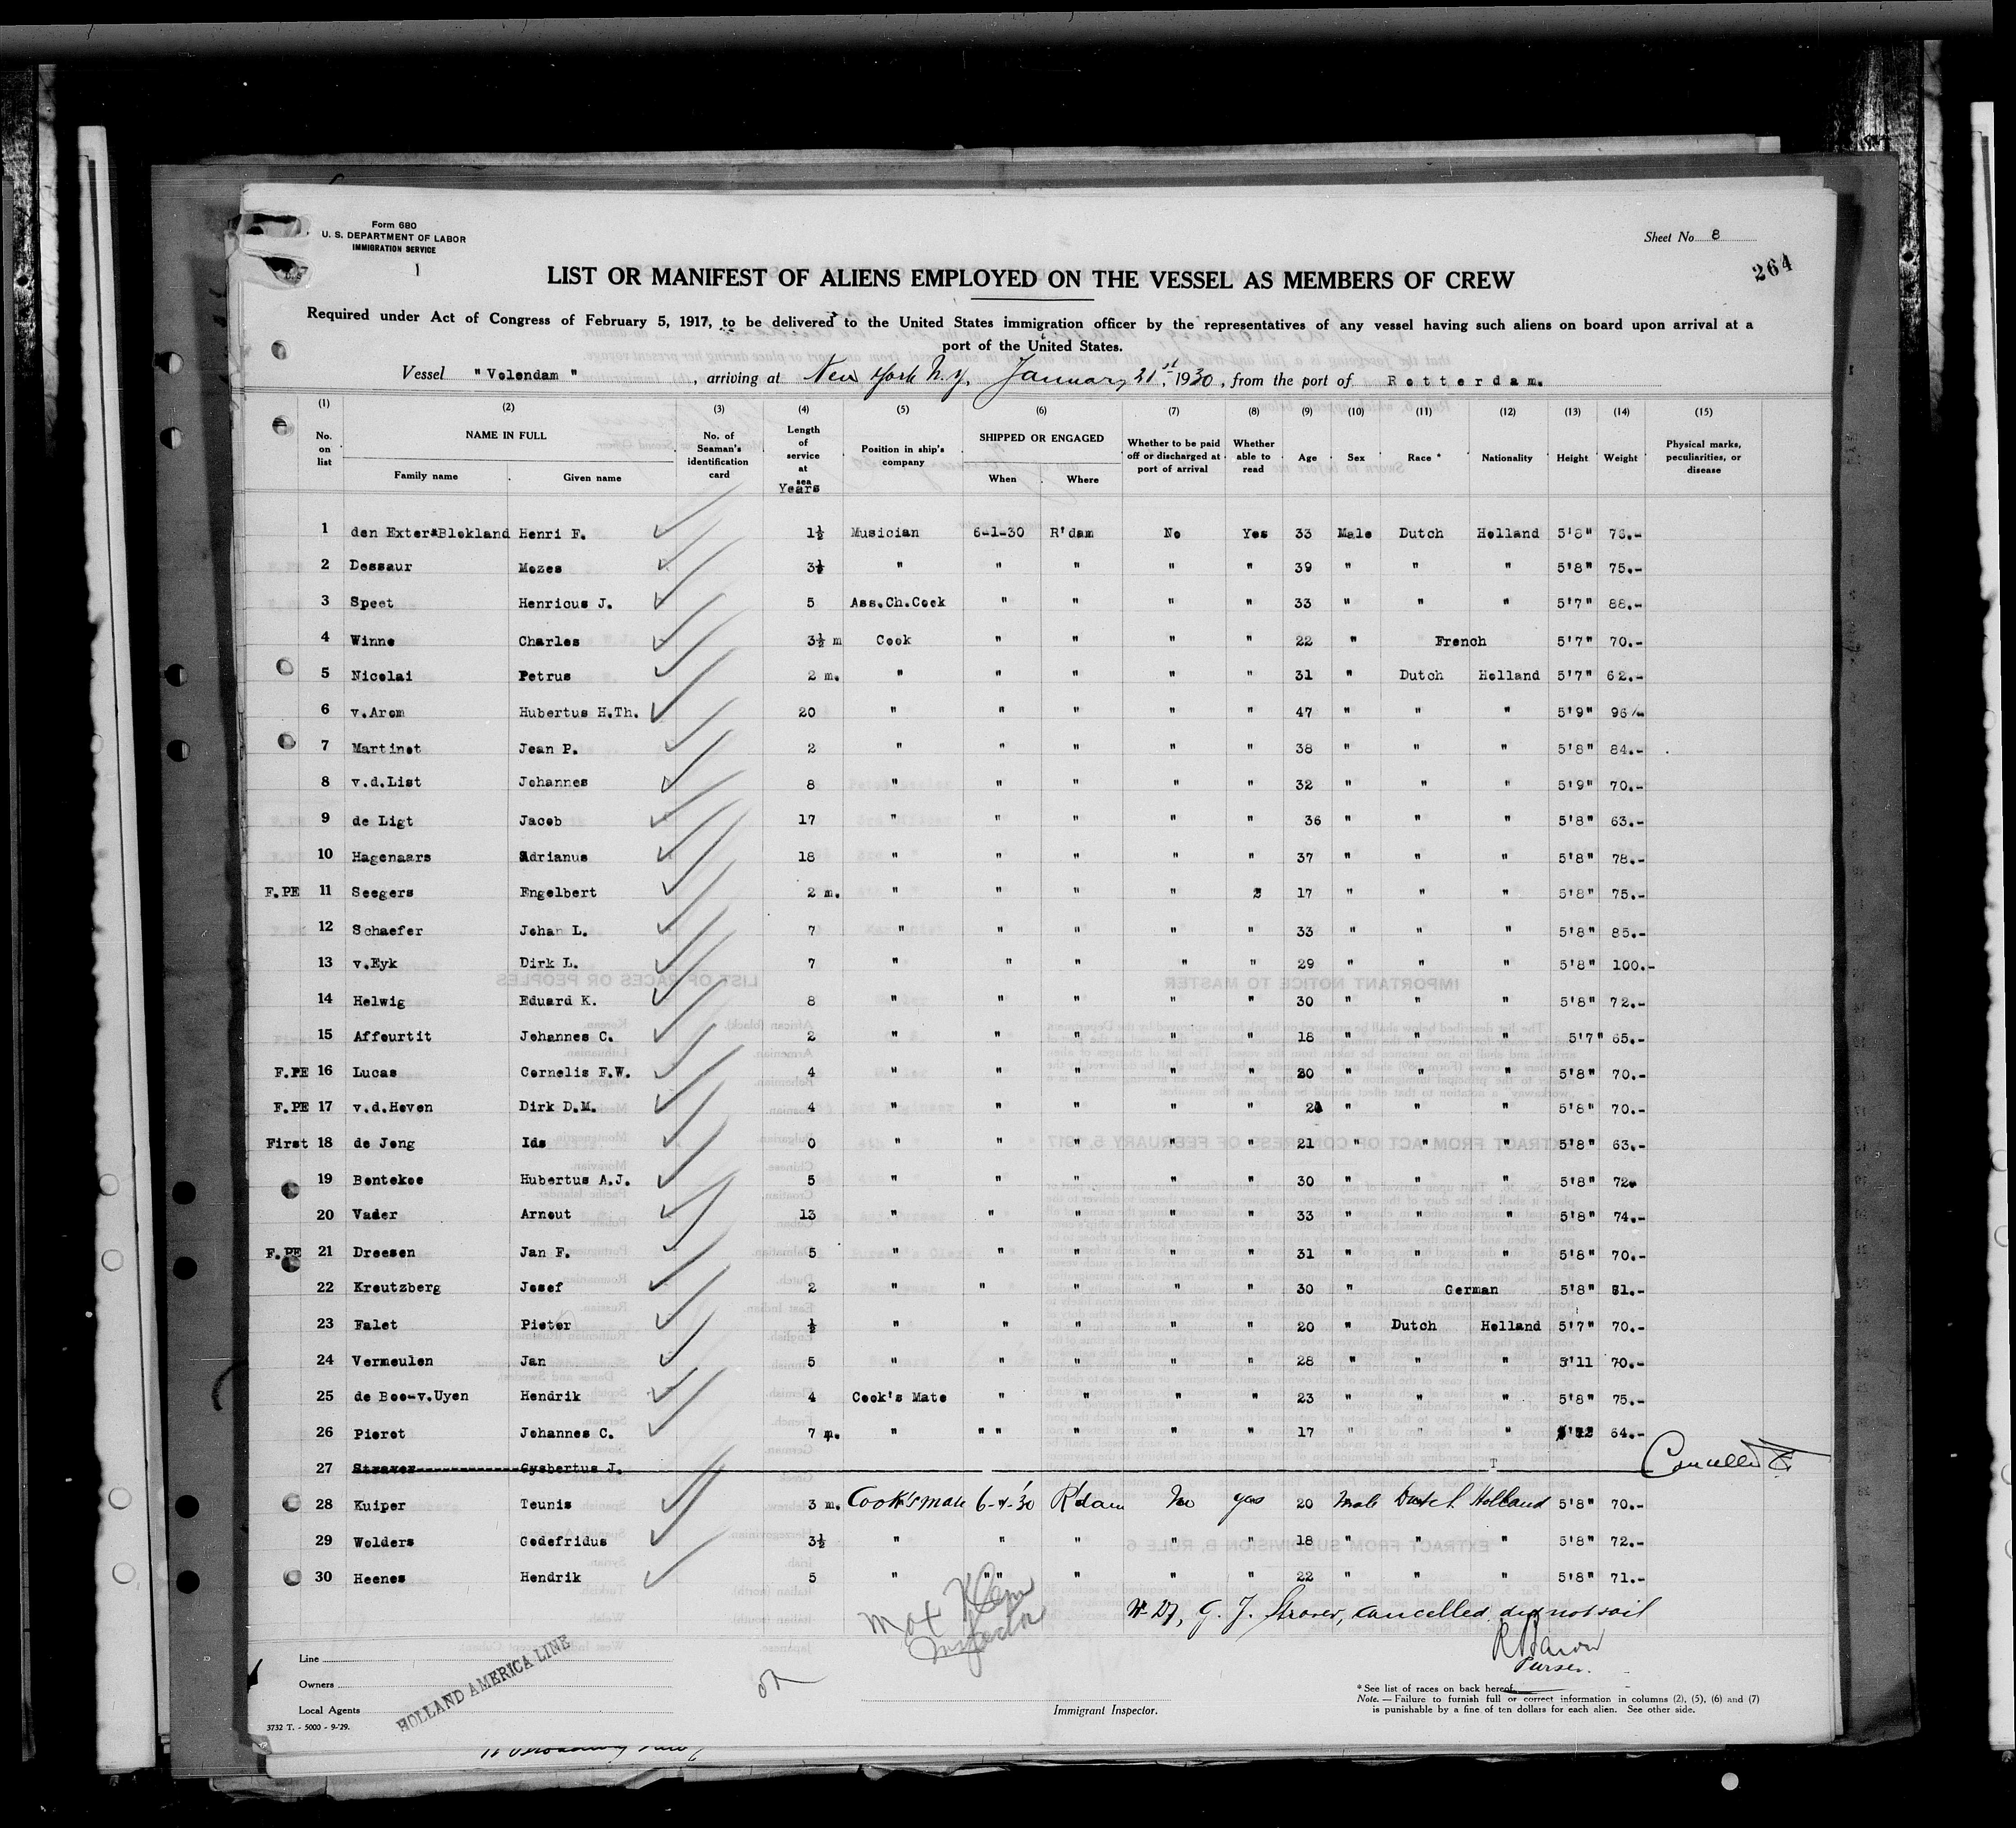 Form 680
U. S. DEPARTMENT OF LABOR
IMMIGRATION SERVICE
1
Sheet No 8
264
LIST OR MANIFEST OF ALIENS EMPLOYED ON THE VESSEL AS MEMBERS OF CREW
Required under Act of Congress of February 5, 1917, to be delivered to the United States immigration officer by the representatives of any vessel having such aliens on board upon arrival at a
port of the United States.
Vessel "Volendam", arriving at New York N.Y. January 21st, 1930, from the port of Rotterdam.
(1) (2) (3) (4) (5) (6) (7) (8) (9) (10) (11) (12) (13) (14) (15)
No. on list NAME IN FULL Family name Given name No. of Seaman's identification card Length of service at sea Years Position in ship's company SHIPPED OR ENGAGED When Where Whether to be paid off or discharged at port of arrival Whether able to read Age Sex Race * Nationality Height Weight Physical marks, peculiarities, or disease
1 den Exter Blokland Henri F. 1½ Musician 6-1-30 R'dam No Yes 33 Male Dutch Holland 5'8" 76.-
2 Dessaur Mozes 3½ " " " " " 39 " " " 5'8" 75.-
3 Speet Henricus J. 5 Ass.Ch.Cook " " " " 33 " " " 5'7" 88.-
4 Winne Charles 3½ m Cook " " " " 22 " French 5'7" 70.-
5 Nicolai Petrus 2 m. " " " " " 31 " Dutch Holland 5'7" 62.-
6 v.Arem Hubertus H.Th. 20 " " " " " 47 " " " 5'9" 96
7 Martinot Jean P. 2 " " " " " 38 " " " 5'8" 84.-
8 v.d.List Johannes 8 " " " " " 32 " " " 5'9" 70.-
9 de Ligt Jacob 17 " " " " " 36 " " " 5'8" 63.-
10 Hagenaars Adrianus 18 " " " " " 37 " " " 5'8" 78.-
F.PE 11 Seegers Engelbert 2 m. " " " " 17 " " " 5'8" 75.-
12 Schaefer Johan L. 7 " " " " " 33 " " " 5'8" 85.-
13 v.Eyk Dirk L. 7 " " " " " 29 " " " 5'8" 100.-
14 Helwig Eduard K. 8 " " " " " 30 " " " 5'8" 72.-
15 Affourtit Johannes C. 2 " " " " " 18 " " " 5'7" 65.-
F.PE 16 Lucas Cornelis F.W. 4 " " " " " 20 " " " 5'8" 70.-
F.PE 17 v.d.Hoven Dirk D.M. 4 " " " " " " " " 5'8" 70.-
First 18 de Jong Ids 0 " " " " " 21 " " " 5'8" 63.-
19 Bontekoe Hubertus A.J. 5 " " " " " 30 " " " 5'8" 72
20 Vader Arnout 13 " " " " " 33 " " " 5'8" 74.-
F.PE 21 Dreesen Jan F. 5 " " " " " 31 " " " 5'8" 70.-
22 Kreutzberg Josef 2 " " " " " 30 " German 5'8" 81.-
23 Falet Pieter ½ " " " " " 20 " Dutch Holland 5'7" 70.-
24 Vermeulen Jan 5 " " " " " 28 " " " 5'11 70.-
25 de Boo-v.Uyen Hendrik 4 Cook's Mate " " " " 23 " " " 5'8" 75.-
26 Pierot Johannes C. 7 m. " " " " " 17 " " " 64.-
27 Straver Gysbertus J. Cancelled
28 Kuiper Teunis 3 m. Cook's mate 6-1-'30 R'dam No yes 20 Male Dutch Holland 5'8" 70.-
29 Wolders Godefridus 3½ " " " " " 18 " " " 5'8" 72.-
30 Heenes Hendrik 5 " " " " " 22 " " " 5'8" 71.-
Nr 27, G. J. Straver, cancelled did not sail
Max Klein
Inspector
Purser.
Line
Owners
Local Agents
HOLLAND AMERICA LINE
3732 T. - 5000 - 9-'29.
Immigrant Inspector.
* See list of races on back hereof.
Note. — Failure to furnish full or correct information in columns (2), (5), (6) and (7)
is punishable by a fine of ten dollars for each alien. See other side.